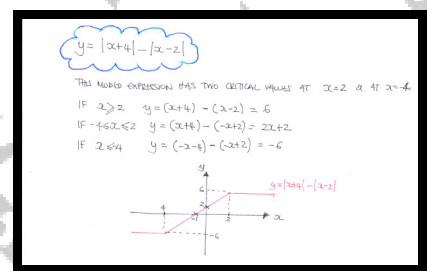 y = |x+4| - |x-2|
THIS MODULO EXPRESSION HAS TWO CRITICAL VALUES AT x=2 & AT x=-4
IF x⩾2 y = (x+4) - (x-2) = 6
IF -4⩽x⩽2 y = (x+4) - (-x+2) = 2x+2
IF x⩽-4 y = (-x-4) - (-x+2) = -6
y
6
y=|x+4|-|x-2|
2
4
-1
2
x
-6